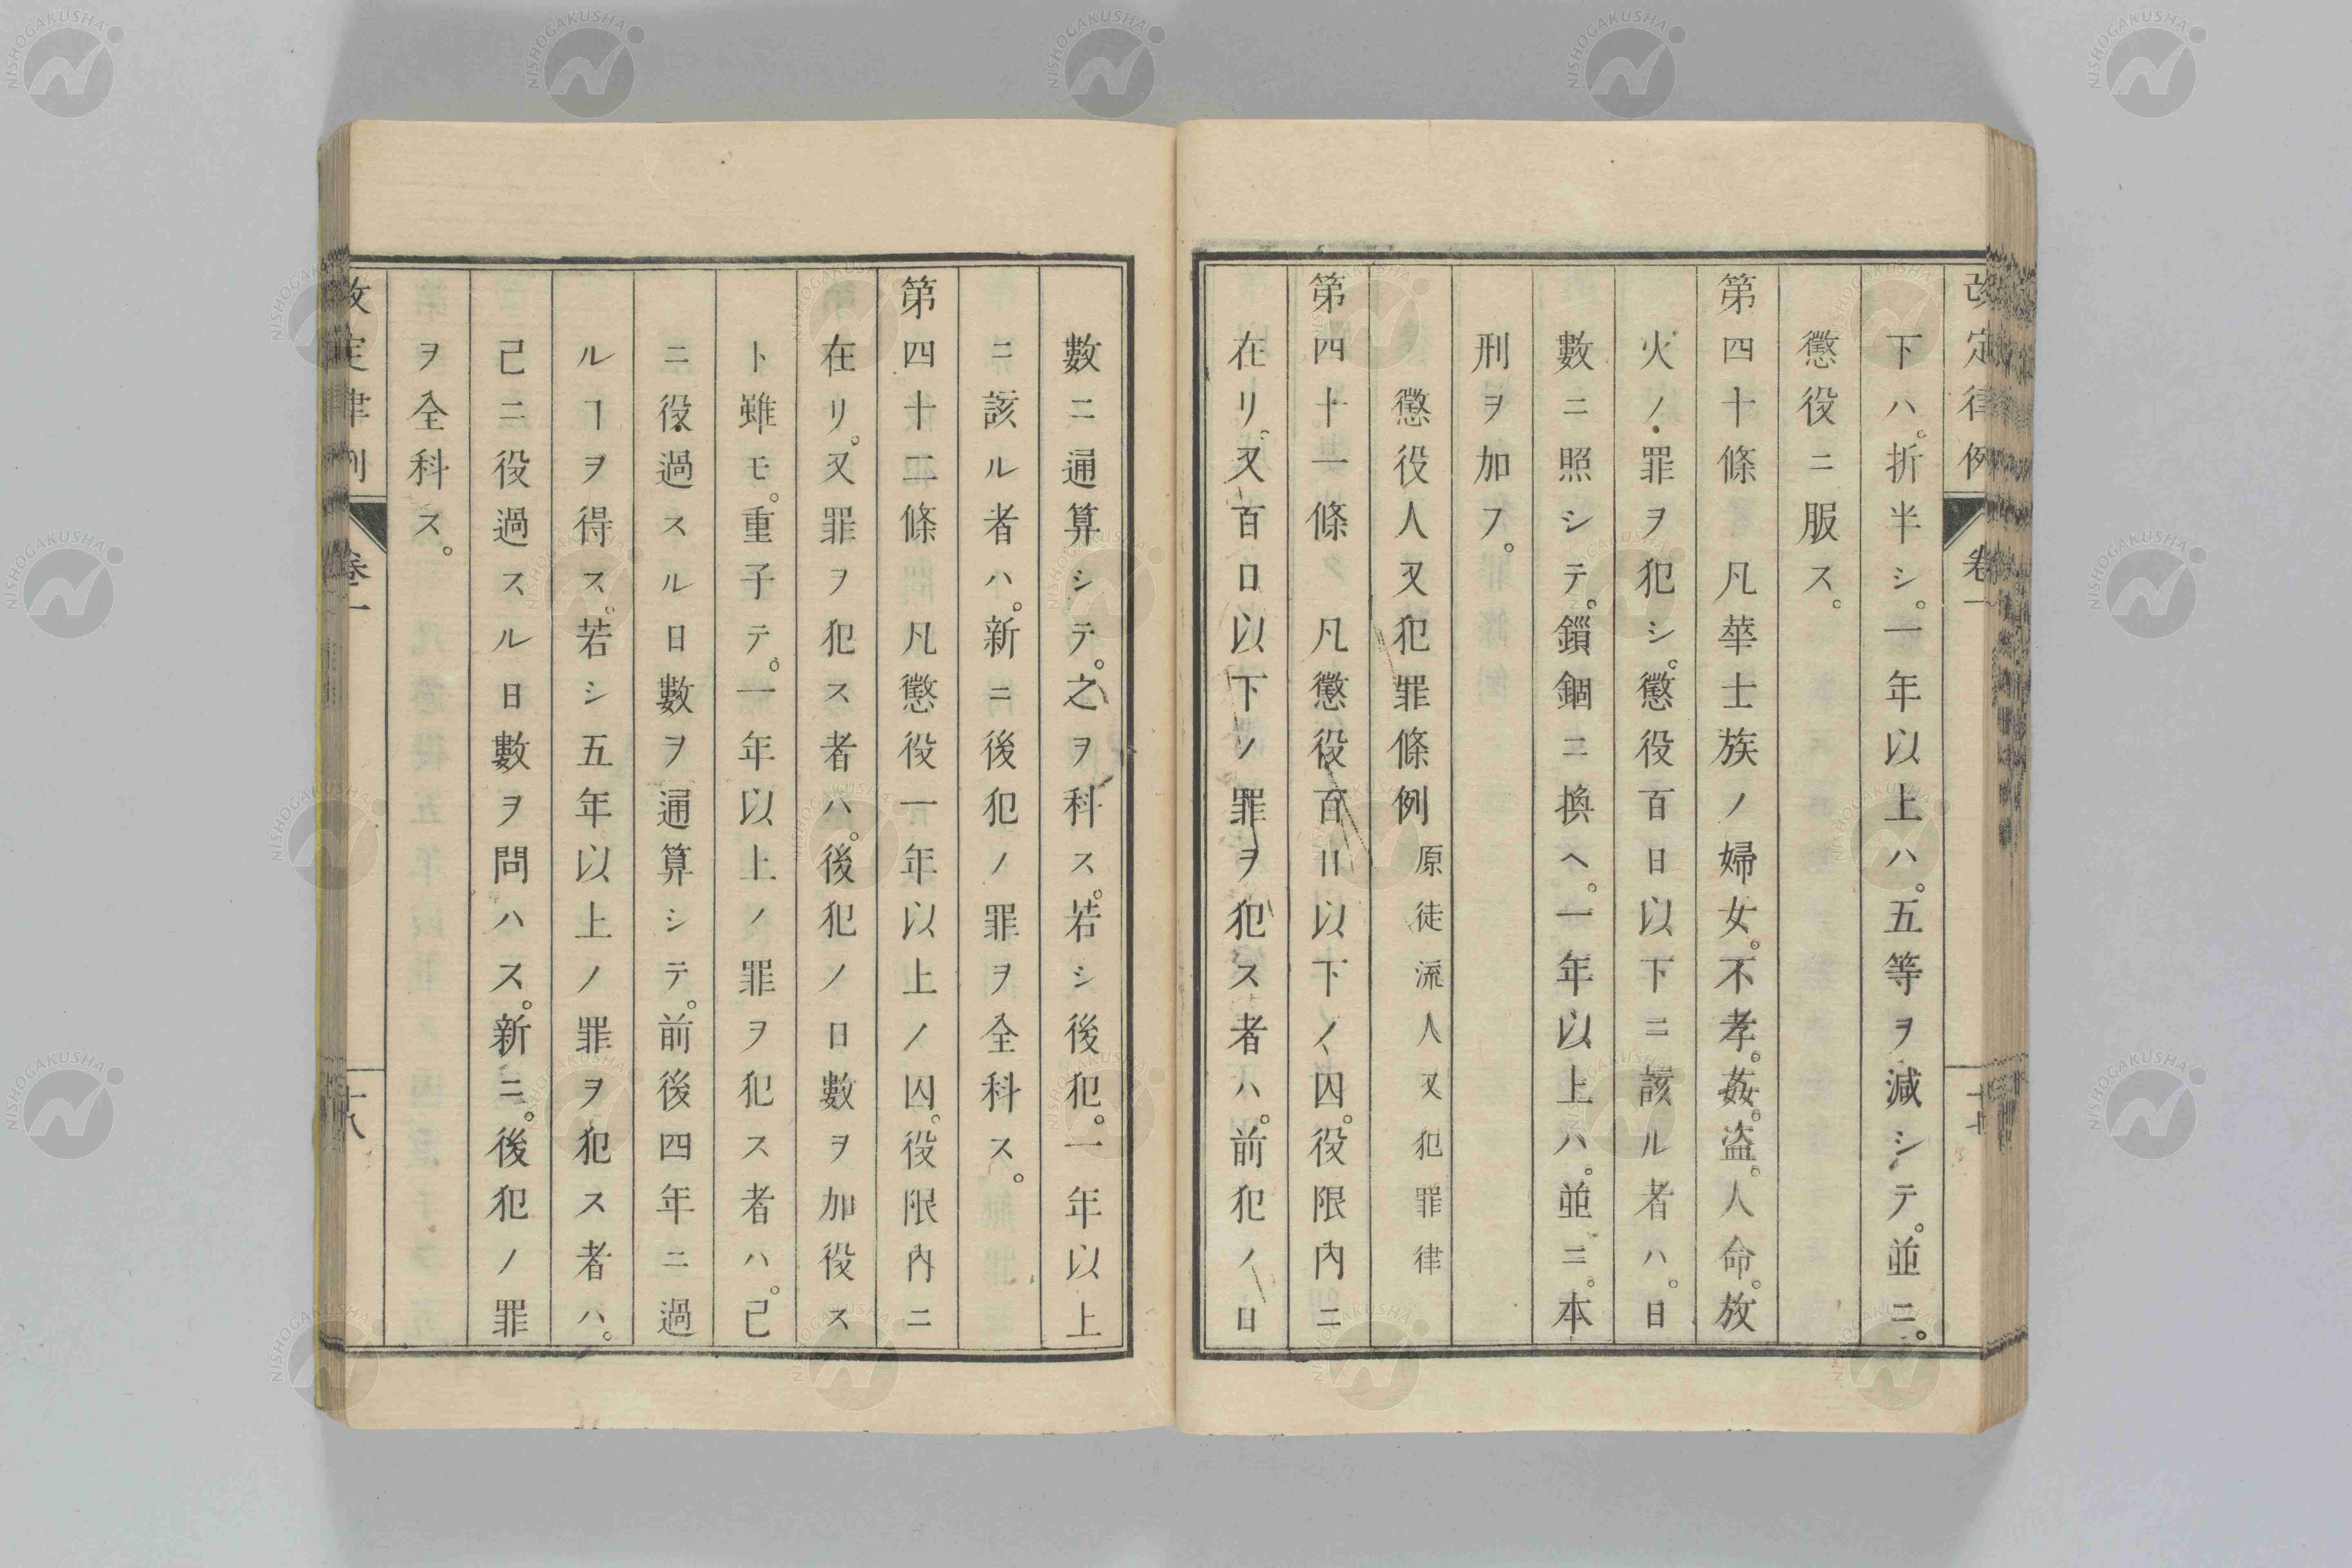 改定律例 卷一 十七
下ハ。折半シ。一年以上ハ。五等ヲ減シテ。並ニ。
懲役ニ服ス。
第四十條 凡華士族ノ婦女。不孝。姦。盜。人命。放
火ノ罪ヲ犯シ。懲役百日以下ニ該ル者ハ。日
數ニ照シテ。鎻錮ニ換ヘ。一年以上ハ。並ニ。本
刑ヲ加フ。
懲役人又犯罪條例 原徒流人又犯罪律
第四十一條 凡懲役百日以下ノ囚。役限內ニ
在リ。又百日以下ノ罪ヲ犯ス者ハ。前犯ノ日
數ニ通算シテ。之ヲ科ス。若シ後犯。一年以上
ニ該ル者ハ。新ニ後犯ノ罪ヲ全科ス。
第四十二條 凡懲役一年以上ノ囚。役限內ニ
在リ。又罪ヲ犯ス者ハ。後犯ノ日數ヲ加役ス
ト雖モ。重子テ。一年以上ノ罪ヲ犯ス者ハ。已
ニ役過スル日數ヲ通算シテ。前後四年ニ過
ルヿヲ得ス。若シ五年以上ノ罪ヲ犯ス者ハ。
已ニ役過スル日數ヲ問ハス。新ニ。後犯ノ罪
ヲ全科ス。
改定律例 卷一 十八
NISHOGAKUSHA